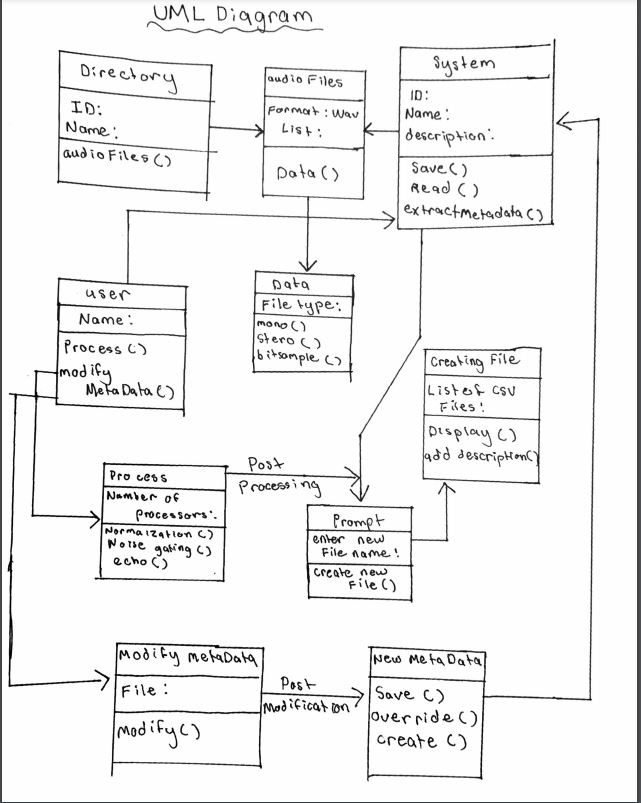 UML Diagram
Directory
ID:
Name:
audioFiles()
audioFiles
Format: Wav
List:
Data()
System
ID:
Name:
description:
Save()
Read()
extractMetadata()
user
Name:
Process()
modify
MetaData()
Data
File type:
mono()
Stero()
bitsample()
Creating File
List of CSV
Files:
Display()
add description()
Process
Number of
processors:
Normalization()
Noise gating()
echo()
Post
Processing
Prompt
enter new
File name:
create new
File()
Modify metaData
File:
Modify()
Post
Modification
New MetaData
Save()
override()
create()